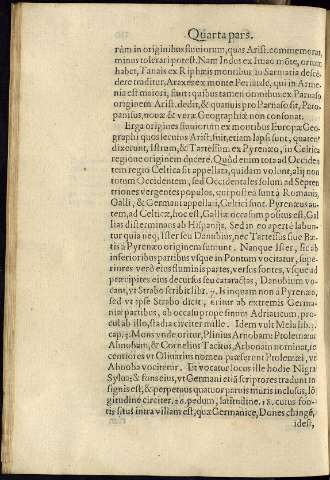 Quarta pars.
rũm in originibus fluviorum, quas Arist. commemorat,
minus tolerari potest. Nam Indus ex Imao mõte, ortum
habet, Tanais ex Riphæis montibus in Sarmatia descẽ-
dere traditur, Araxes ex monte Periarde, qui in Arme-
nia est maiori, fluit: quibus tamen omnibus ex Parnaso
originem Arist. dedit, & quanuis pro Parnaso sit, Paro-
panisus, nouæ & veræ Geographiæ non consonat.
Erga origines fluuiorum ex montibus Europæ Geo-
graphi quos secutus Arist. fuit, etiam lapsi sunt, quatenᵒ
dixerunt, Istrum, & Tartessum ex Pyrenæo, in Celtica
regione originem ducere. Quòd enim tota ad Occiden
tem regio Celtica sit appellata, quidam volunt, alij non
totum Occidentem, sed Occidentales solum ad Septen
triones vergentes populos, qui postea sunt à Romanis,
Galli, & Germani appellari, Celtici sunt. Pyrenæus au-
tem, ad Celticæ, hoc est, Galliæ occasum positus est, Gal
lias disterminans ab Hispanijs. Sed in eo apertè labun-
tur quia neq; Ister seu Danubius, nec Tartessus siue Bæ-
tis à Pyrenæo originem sumunt. Nanque Ister, sic ab
inferioribus partibus vsque in Pontum vocitatur, supe-
riores verò eius fluminis partes, versus fontes, vsque ad
præcipites eius decursus seu cataractas, Danubium vo-
cant, vt Strabo scribit lib. 7. Is inquam non à Pyrenæo,
sed vt ipse Strabo dicit, oritur ab extremis Germa-
niæ partibus, ab occulupro pe sinues Adriaticum, pro-
cul ab illo, stadia circiter mille. Idem vult Mela lib. 2.
cap. 3. Mons vnde oritur, Plinius Arnobam: Ptolomæus
Ahnobam, & Cornelius Tacitus, Arbonam nominat, re
centiores vt Oliuarius nomen præferent Ptolemæi, vt
Ahnoba vocitetur. Et vocatur locus ille hodie Nigra
Sylua; & fons eius, vt Germani etiã scriptores tradunt in
signis est, & perpetuus quatuor paruis muris inclusus, lõ
gitudine circiter, 26. pedum, latitudine, 18. cuius fon-
tis situs intra villam est, quæ Germanicè, Dones changé,
idest,